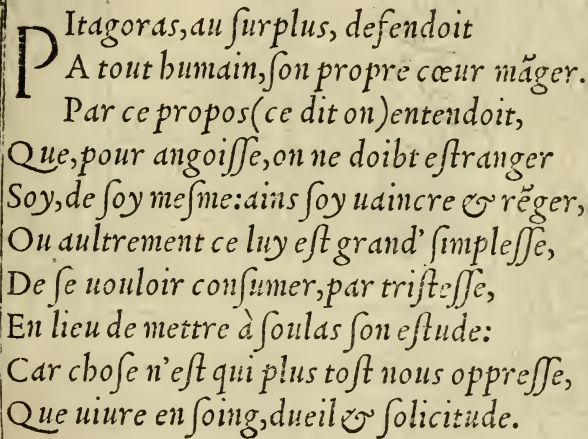 PItagoras,au ſurplus, defendoit
A tout humain,ſon propre cœur mãger.
Par ce propos(ce dit on)entendoit,
Que,pour angoiſſe,on ne doibt eſtranger
Soy,de ſoy meſme:ains ſoy uaincre & rẽger,
Ou aultrement ce luy eſt grand' ſimpleſſe,
De ſe uouloir conſumer,par triſteſſe,
En lieu de mettre à ſoulas ſon eſtude:
Car choſe n'eſt qui plus toſt nous oppreſſe,
Que uiure en ſoing,dueil & ſolicitude.